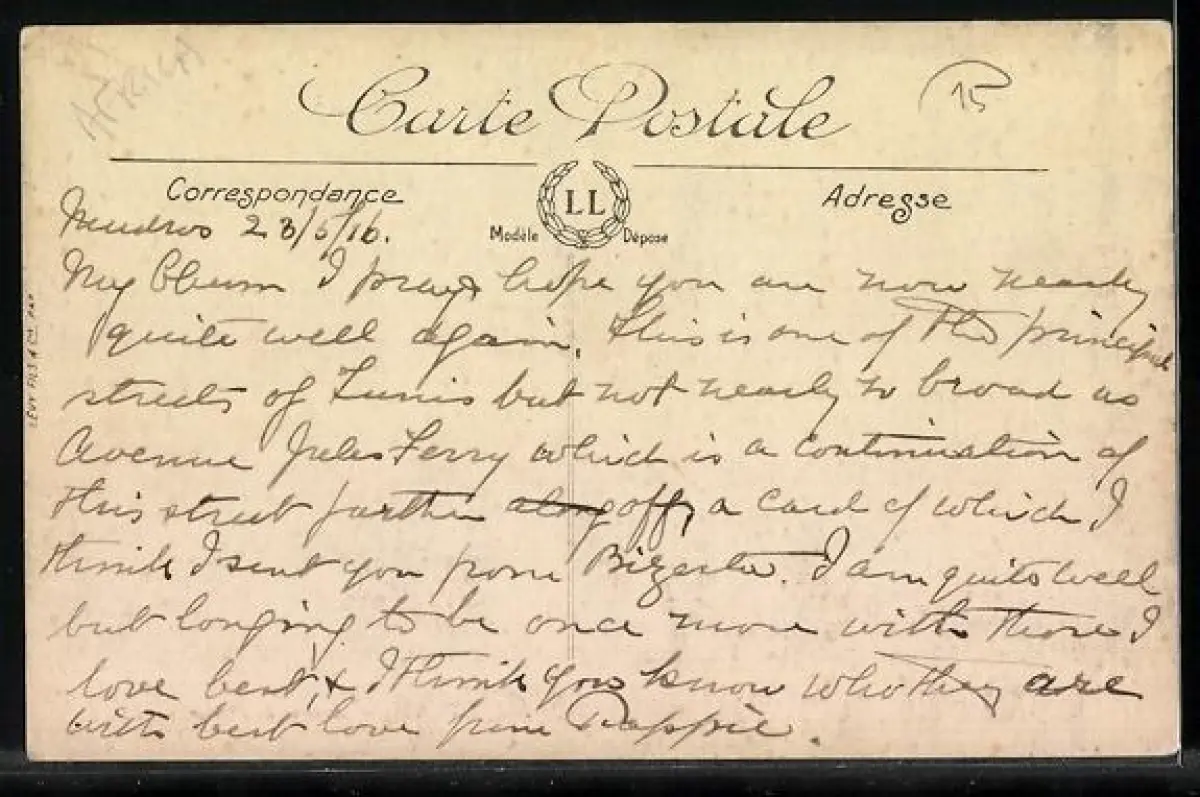 AFRICA
15
Carte Postale
Correspondance
LL
Adresse
Modèle Déposé
Mudros 23/5/16.
My Chum I pray & hope you are now nearly
quite well again. This is one of the principal
streets of Tunis but not nearly so broad as
Avenue Jules Ferry which is a continuation of
this street further along off, a card of which I
think I sent you from Bizerta. I am quite well
but longing to be once more with those I
love best, & I think you know who they are
with best love from